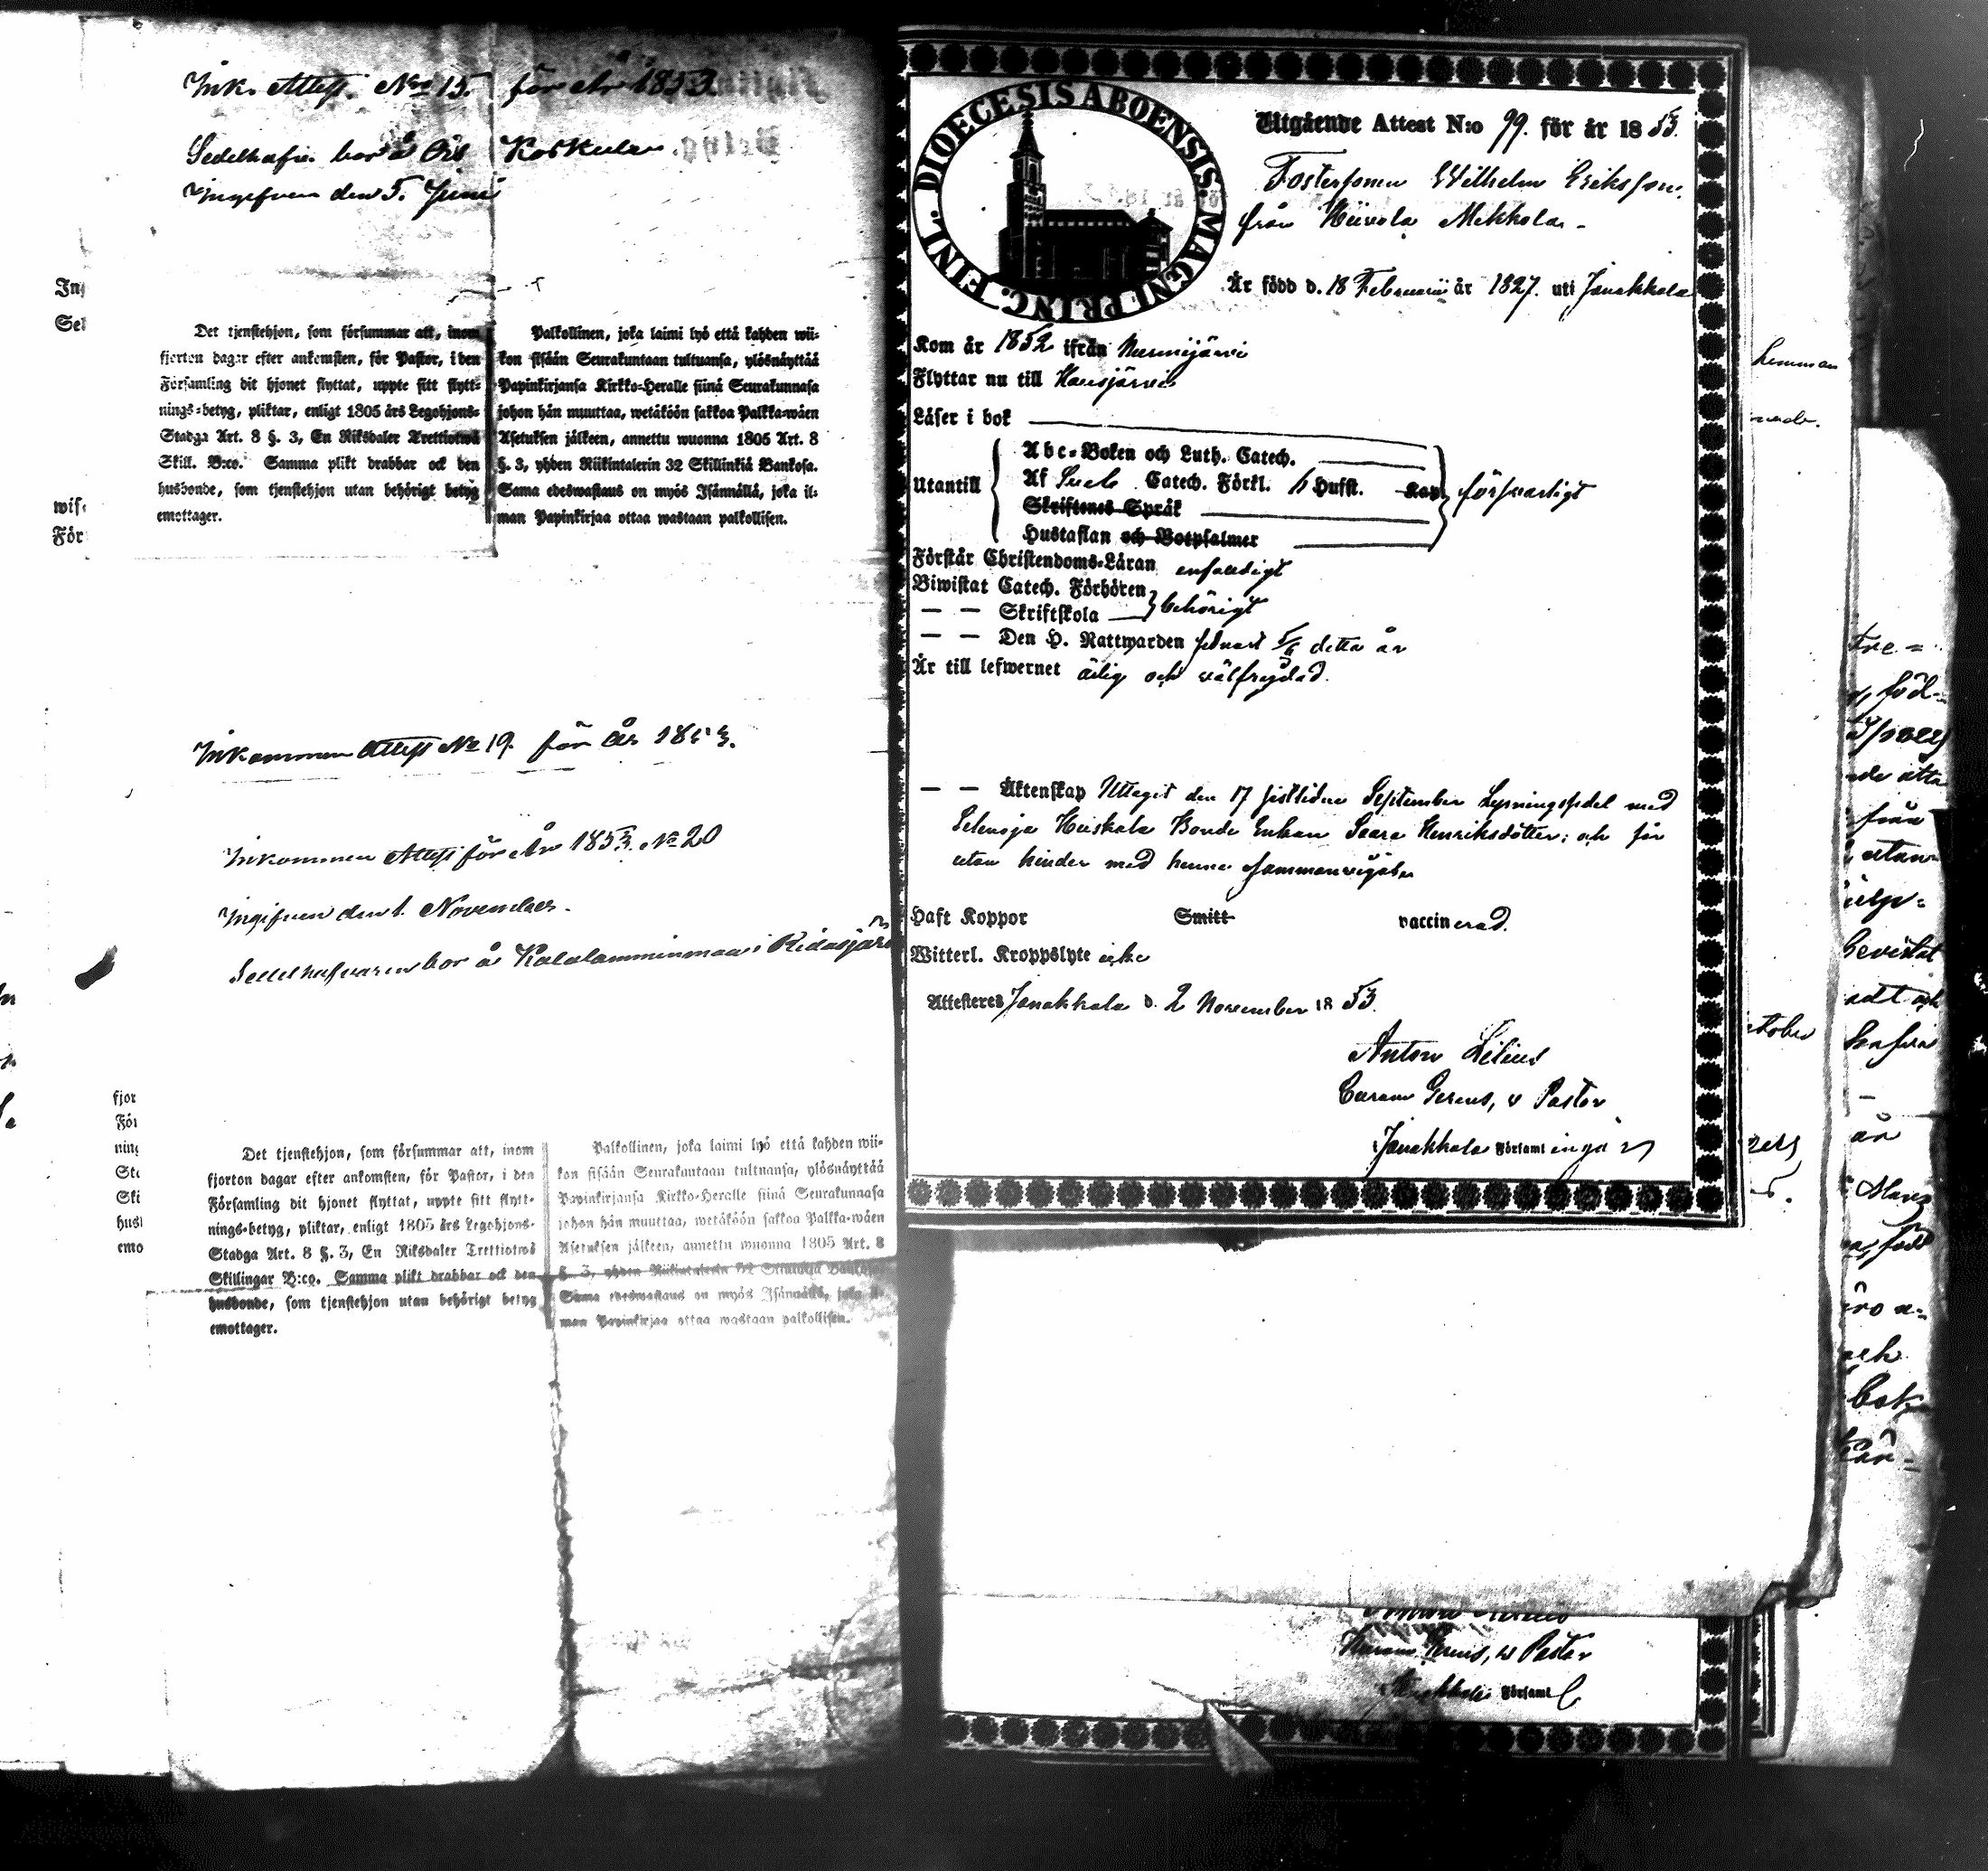 Ink. Attest. No 15. för år 1853.
Sedelhafv. bor å Ois Koskula
Ingifven den 5. Juni
Det tjenstehjon, som försummar att, inom
fjorton dagar efter ankomsten, för Pastor, i den
Församling dit hjonet flyttat, uppte sitt flytt-
nings-betyg, pliktar, enligt 1805 års Legohjons-
Stadga Art. 8 §. 3, En Riksdaler Trettiotwå
Skill. B:co. Samma plikt drabbar ock den
husbonde, som tjenstehjon utan behörigt betyg
emottager.
Palkollinen, joka laimi lyö että kahden wii-
kon sisään Seurakuntaan tultuansa, ylösnäyttää
Papinkirjansa Kirkko-Heralle siinä Seurakunnasa
johon hän muuttaa, wetäköön sakkoa Palkka-wäen
Asetuksen jälkeen, annettu wuonna 1805 Art. 8
§. 3, yhden Riikintalerin 32 Skillinkiä Bankosa.
Sama edeswastaus on myös Isännällä, joka il-
man Papinkirjaa ottaa wastaan palkollisen.
Inkommen Attest No 19. för År 1853.
Inkommen Attest för År 1853. No 20
Ingifven den 1. November.
Sedelhafvaren bor å Kalalamminmaa i Ridasjärvi
Det tjenstehjon, som försummar att, inom
fjorton dagar efter ankomsten, för Pastor, i den
Församling dit hjonet flyttat, uppte sitt flytt-
nings-betyg, pliktar, enligt 1805 års Legohjons-
Stadga Art. 8 §. 3, En Riksdaler Trettiotwå
Skillingar B:co. Samma plikt drabbar ock den
husbonde, som tjenstehjon utan behörigt betyg
emottager.
Palkollinen, joka laimi lyö että kahden wii-
kon sisään Seurakuntaan tultuansa, ylösnäyttää
Papinkirjansa Kirkko-Heralle siinä Seurakunnasa
johon hän muuttaa, wetäköön sakkoa Palkka-wäen
Asetuksen jälkeen, annettu wuonna 1805 Art. 8
§. 3, yhden Riikintalerin 32 Skillinkiä Bankosa.
Sama edeswastaus on myös Isännällä, joka il-
man Papinkirjaa ottaa wastaan palkollisen.
DIOECESIS ABOENSIS. MAGNI PRINC. FINL.
Utgående Attest N:o 99. för år 1853.
Fostersonen Wilhelm Eriksson,
från Hiivola Mikkola
Är född d. 18 Februarii år 1827. uti Janakkala
Kom år 1852 ifrån Nurmijärvi
Flyttar nu till Hausjärvi
Läser i bok
Utantill
Abc-Boken och Luth. Catech.
Af Catech. Förkl. Hufst. Kap. försvarligt
Skriftenes Språk
Hustaflan och Botpsalmer
Förstår Christendoms-Läran enfaldigt
Biwistat Catech. Förhören
— — Skriftskola behörigt
— — Den H. Nattwarden senast detta år
Är till lefwernet ärlig och välfrejdad.
— — Äktenskap Uttagit den 17 sistlidne September Lysningssedel med
Bonde Enkan Saara Henriksdotter; och får
utan hinder med henne sammanvigas
Haft Koppor Smitt- vaccinerad.
Witterl. Kroppslyte icke
Attesteras Janakkala d. 2 November 1853.
Anton Lilius
v Pastor
Janakkala Församlingar
v Pastor
Församl